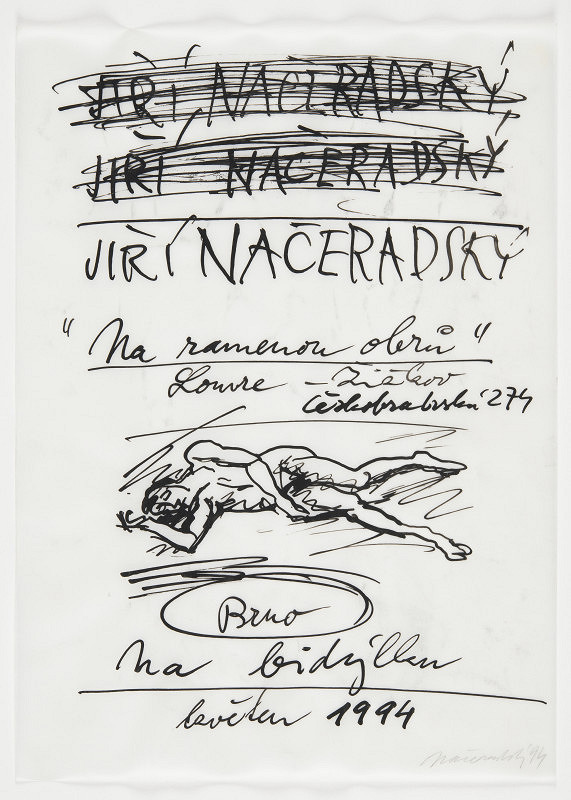 JIŘÍ NAČERADSKÝ
JIŘÍ NAČERADSKÝ
JIŘÍ NAČERADSKÝ
"Na ramenou obrů"
Louvre – Žižkov
Českobrodská 274
Brno
Na bidýlku
květen 1994
Načeradský 94